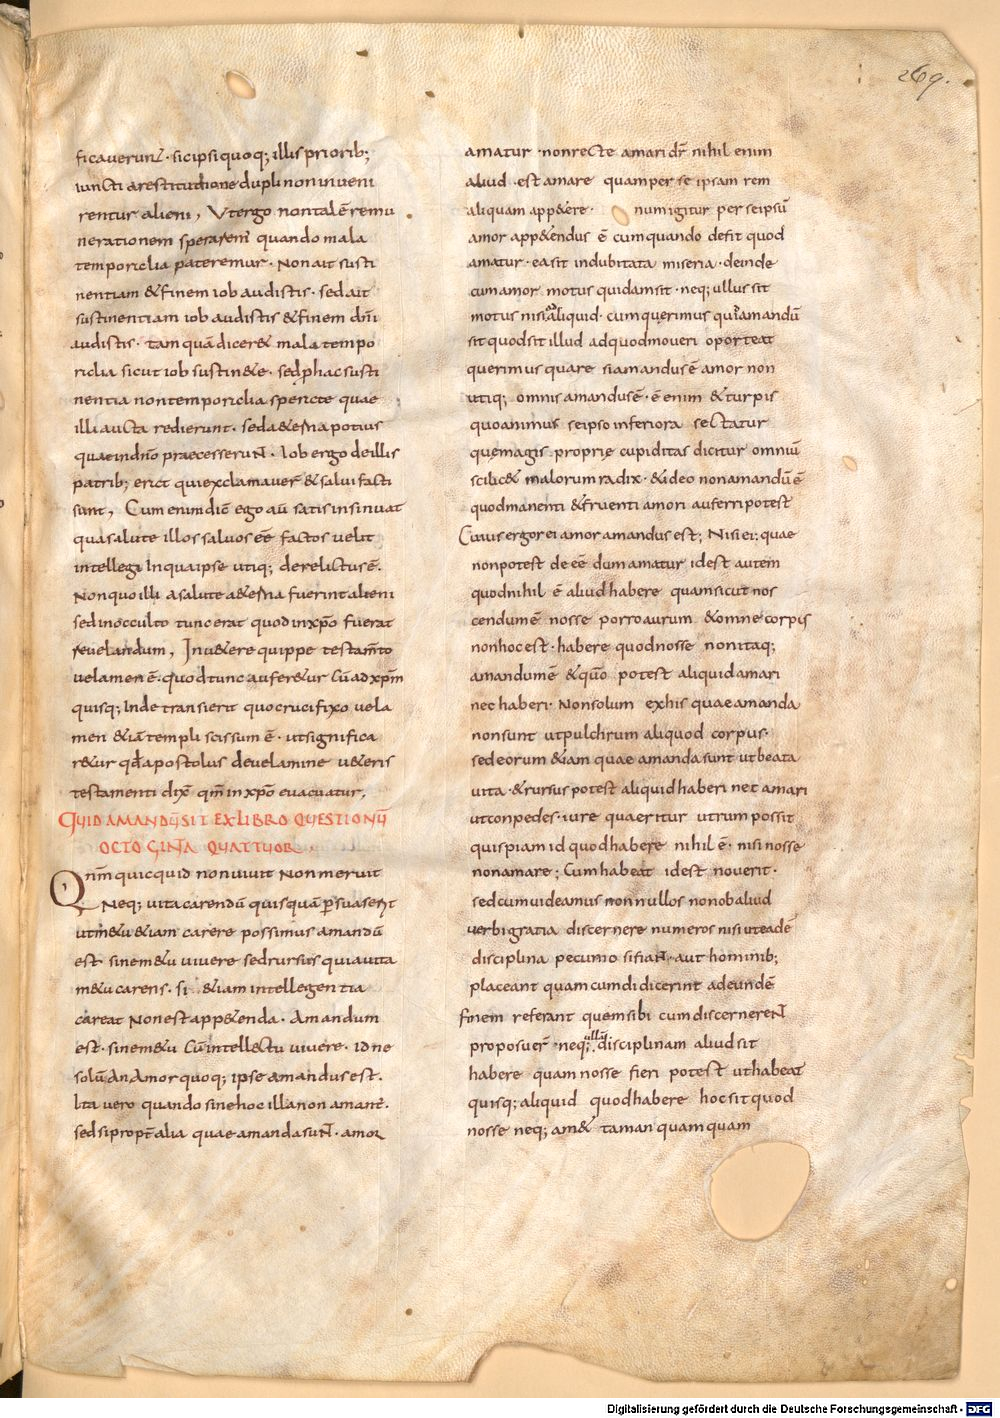 269.
ficauerunt · sic ipsi quoq; illis priorib;
iuncti a restitutione dupli non inueni
rentur alieni, Ut ergo non talē remu
nerationem sperarent quando mala
temporalia pateremur · Non ait susti
nentiam & finem iob audistis · sed ait
sustinentiam iob audistis & finem dñi
audistis · tam quā dicer& mala tempo
ralia sicut iob sustin&e · sed p hac susti
nentia non temporalia sperate quae
illi aucta redierunt · sed a&erna potius
quae in dño praecesserunt · Iob ergo de illis
patrib; erat qui exclamauer̄ & salui facti
sunt, Cum enim dič ego aū satis insinuat
qua salute illos saluos eē factos uelit
intellegi In qua ipse utiq; derelictus ē.
Non quo illi a salute a&erna fuerint alieni
sed in occulto tunc erat quod in xp̄o fuerat
reuelandum, In u&ere quippe testam̄to
uelamen ē · quod tunc aufer&ur Cū ad xp̄m
quisq; Inde transierit quo crucifixo uela
men &iā templi scissum ē · ut significa
r&ur qđ apostolus de uelamine u&eris
testamenti dix̄ qm̄ in xp̄o euacuatur,
QUID AMANDŪ SIT EX LIBRO QUESTIONŪ
OCTOGINTA QUATTUOR.
Qnm̄ quicquid non uiuit Non meruit
Neq; uita carendū quisquā p suaserit
ut m&u &iam carere possimus amandū
est sine m&u uiuere sed rursus quia uita
m&u carens · si &iam intellegentia
careat Non est app&enda · Amandum
est · sine m&u Cū intellectu uiuere · id ne
solū An Amor quoq; ipse amandus est.
Ita uero quando sine hoc illa non amant̄.
sed si propt̄ alia quae amanda sunt · amor
amatur · non recte amari dr̄ nihil enim
aliud · est amare quam per se ipsam rem
aliquam app&ere · num igitur per se ipsū
amor app&endus ē cum quando defit quod
amatur · ea sit indubitata miseria · deinde
cum amor motus quidam sit · neq; ullus sit
motus nisi ad aliquid · cum querimus quid amandū
sit quod sit illud ad quod moueri oporteat
querimus quare si amandus ē amor non
utiq; omnis amandus ē · ē enim & turpis
quo animus se ipso inferiora sectatur
quae magis proprie cupiditas dicitur omniū
scilic& malorum radix · & ideo non amandū ē
quod manenti & fruenti amori auferri potest
Cuius ergo rei amor amandus est; Nisi ei; quae
non potest de eē dum amatur id est autem
quod nihil ē aliud habere quam sicut nos
cendum ē nosse porro aurum & omne corpus
non hoc est · habere quod nosse non itaq;
amandum ē & qūo potest aliquid amari
nec haberi · Non solum ex his quae amanda
non sunt ut pulchrum aliquod corpus ·
sed eorum &iam quae amanda sunt ut beata
uita · & rursus potest aliquid haberi nec amari
ut conpedes · iure quaeritur utrum possit
quispiam id quod habere nihil ē · nisi nosse
non amare; Cum habeat id est nouerit ·
sed cum uideamus nonnullos non ob aliud
uerbi gratia discernere numeros nisi ut eadē
disciplina pecunio si fiant · aut hominib;
placeant quam cum didicerint ad eundē
finem referant quem sibi cum discernerent
proposuer̄ · neq; ullā disciplinam aliud sit
habere quam nosse fieri potest ut habeat
quisq; aliquid quod habere hoc sit quod
nosse neq; am& taman quam quam
Digitalisierung gefördert durch die Deutsche Forschungsgemeinschaft - DFG